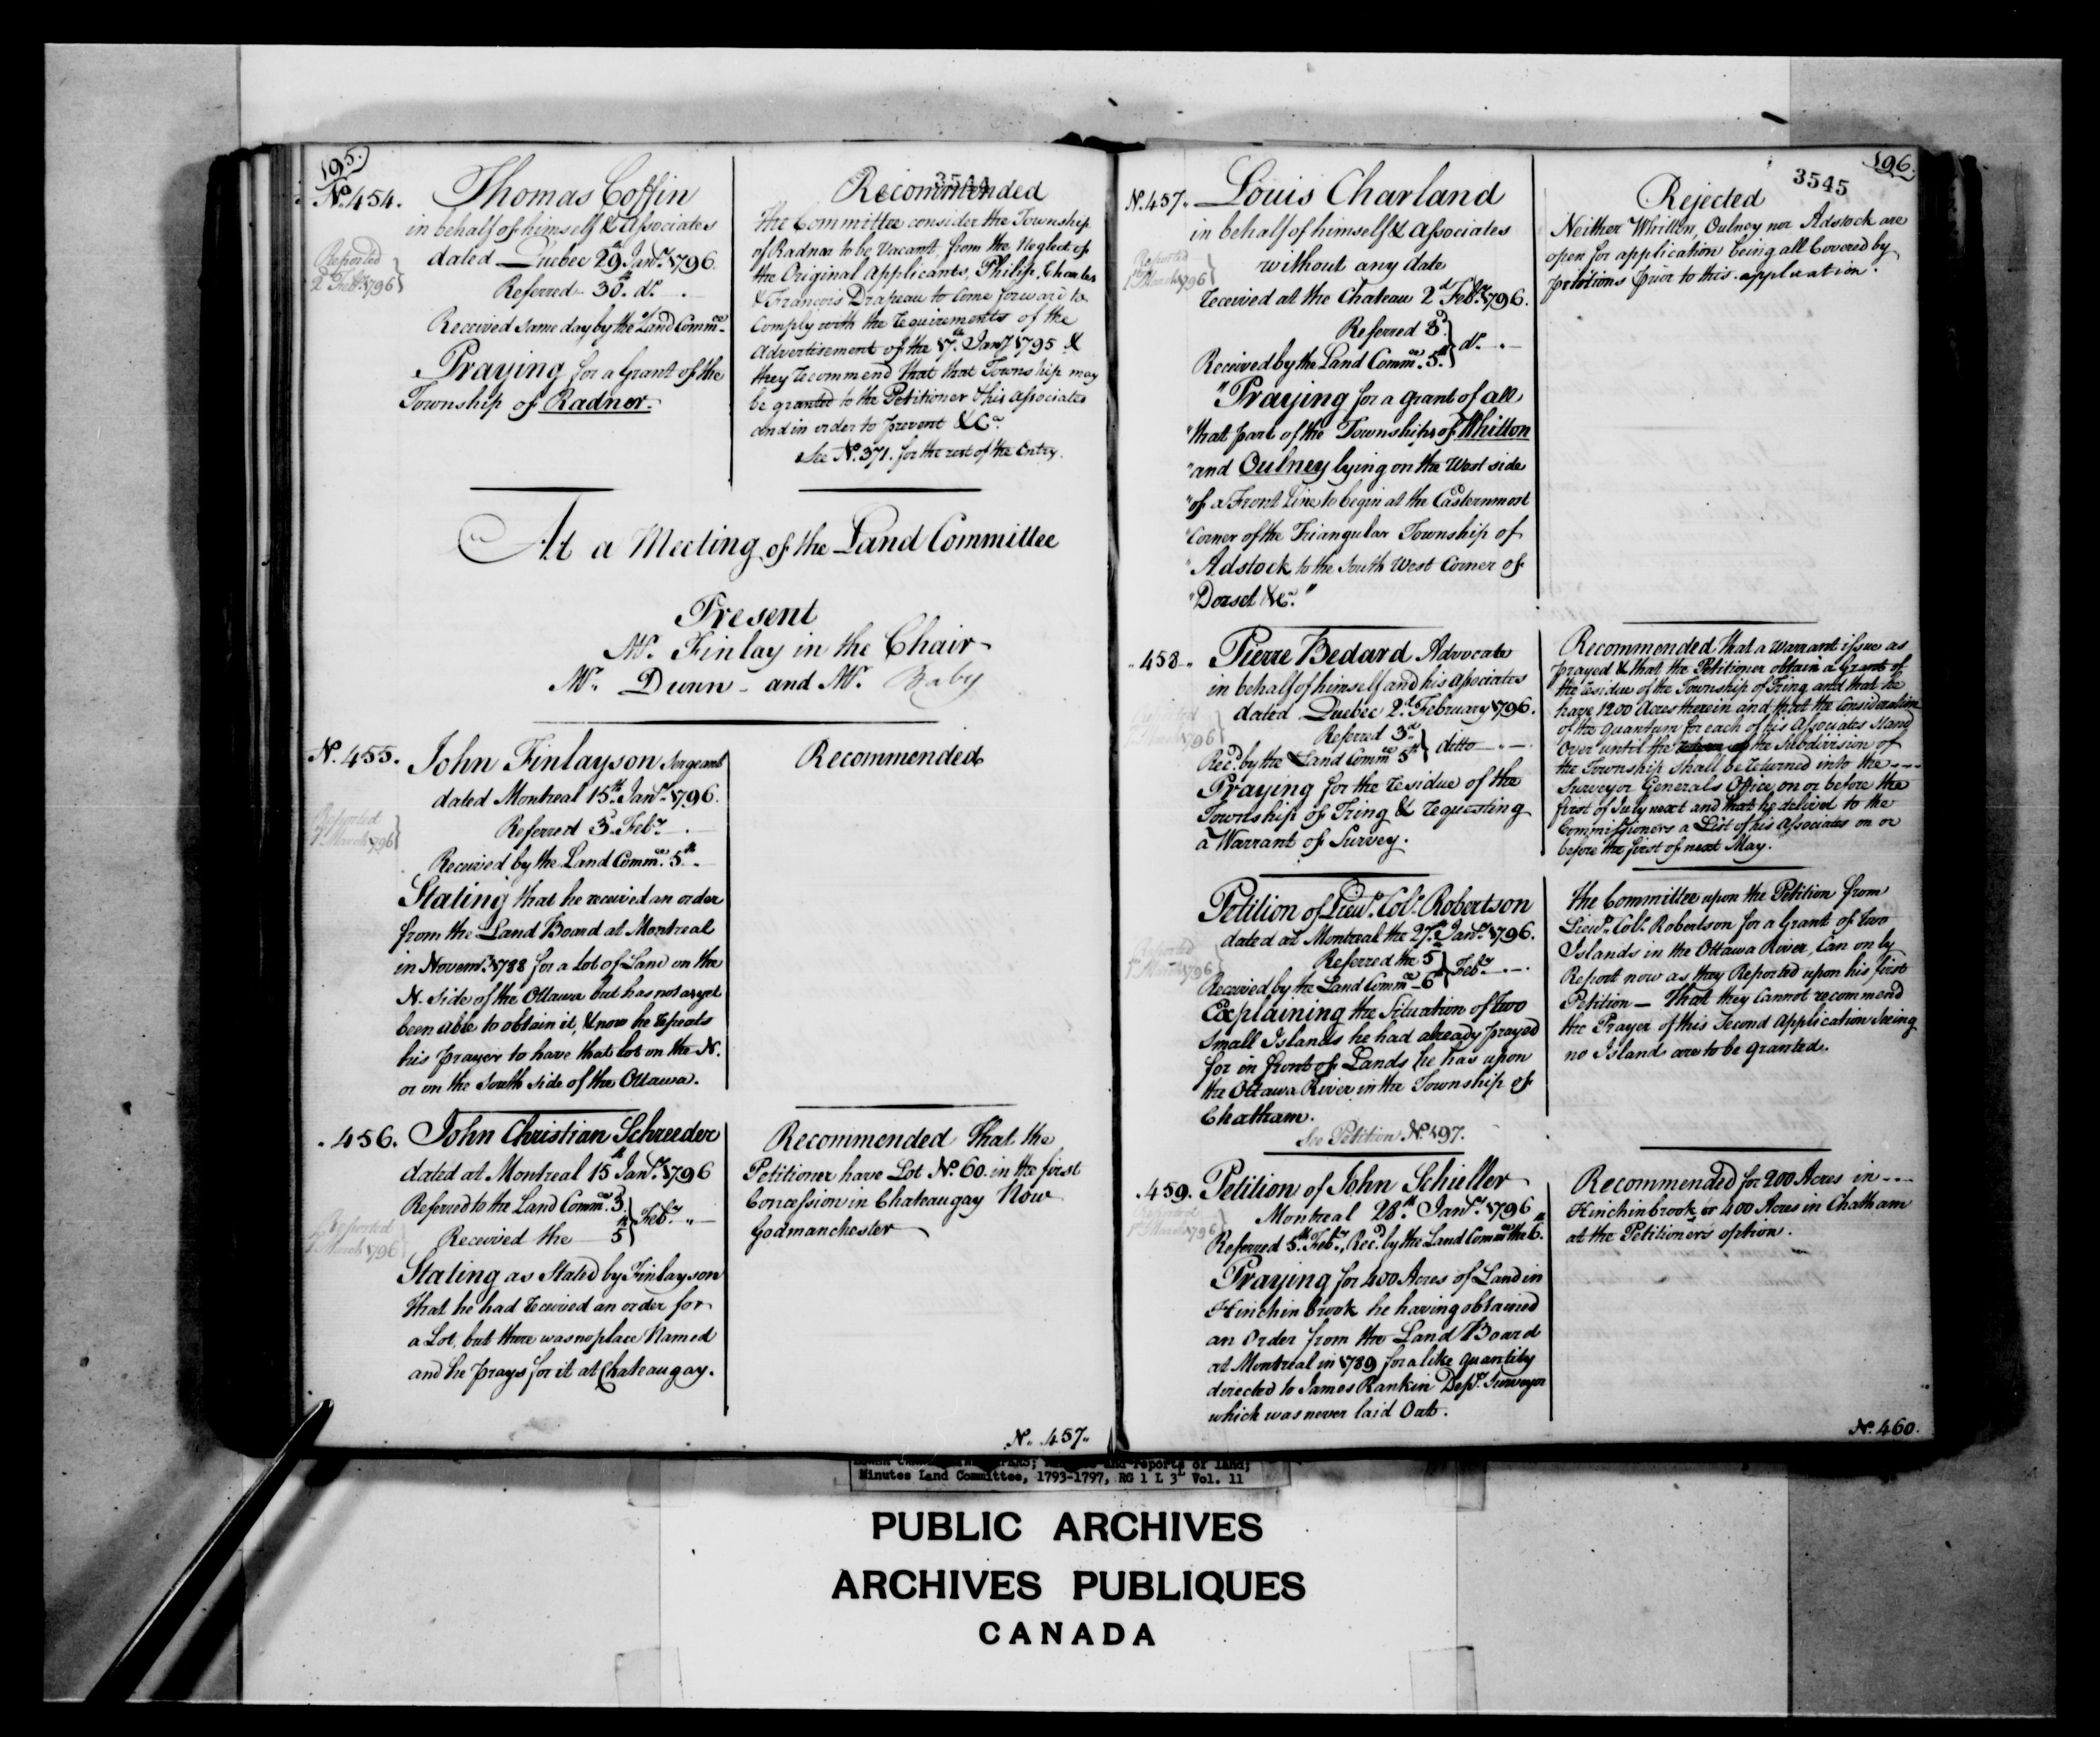 195.
3544
No. 454. Thomas Coffin
in behalf of himself & Associates
dated Quebec 29th Jany. 1796.
Reported
2d Feby. 1796
Referred 30th. do.
Received same day by the Land Commee.
Praying for a Grant of the
Township of Radnor.
Recommended
The Committee consider the Township
of Radnor to be Vacant from the Neglect of
the Original Applicants, Philip, Charles
& Francois Drapeau to come forward to
Comply with the requirements of the
Advertisement of the 17th. Jany. 1795 &
they recommend that that Township may
be granted to the Petitioner & his Associates
and in order to prevent &Ca.
See No. 371. for the rest of the Entry.
At a Meeting of the Land Committee
Present
Mr. Finlay in the Chair
Mr. Dunn - and Mr. Baby
No. 455. John Finlayson Sergeant
dated Montreal 15th. Jany. 1796.
Reported
1st March 1796
Referred 3d. Feby.
Received by the Land Commee. 5th.
Stating that he received an order
from the Land Board at Montreal
in Novemr. 1788 for a Lot of Land on the
N. side of the Ottawa but has not as yet
been able to obtain it, & now he repeats
his prayer to have that lot on the N.
or on the South side of the Ottawa.
Recommended
456. John Christian Schreeder
dated at Montreal 15th Jany. 1796
Referred to the Land Commee. 3d.
Reported
1st March 1796
Received the 5th Feby. "
Stating as Stated by Finlayson
that he had received an order for
a Lot, but there was no place Named
and he prays for it at Chateaugay.
Recommended That the
Petitioner have Lot No. 60. in the first
Concession in Chateaugay Now
Godmanchester
No. 457.
196.
3545
No. 457. Louis Charland
in behalf of himself & Associates
without any date
Reported
1st March 1796
received at the Chateau 2d Feby. 1796.
Referred 3d.
Received by the Land Commee. 5th. do.
"Praying for a grant of all
"that part of the Townships of Whitton
"and Oulney lying on the West side
"of a Front line to begin at the Easternmost
"Corner of the Triangular Township of
"Adstock to the South West Corner of
"Dorset &Ca."
Rejected
Neither Whitton, Oulney nor Adstock are
open for application being all Covered by
petitions prior to this application.
458. Pierre Bedard Advocate
in behalf of himself and his Associates
dated Quebec 2d. February 1796.
Reported
1st March 1796
Referred 3d.
Recd. by the Land Commee 5th ditto
Praying for the residue of the
Township of Tring & requesting
a Warrant of Survey.
Recommended That a warrant issue as
prayed & that the Petitioner obtain a Grant of
the residue of the Township of Tring and that he
have 1200 Acres therein and that the Consideration
of the quantum for each of his Associates stand
over until the the Subdivision of
the Township shall be returned into the
Surveyor Generals Office on or before the
first of July next and that he deliver to the
Commissioners a List of his Associates on or
before the first of next May.
Petition of Lieut. Col. Robertson
dated at Montreal the 27th. Jany. 1796.
Reported
1st March 1796
Referred the 5
Received by the Land Commee 6th Feby.
Explaining the Situation of two
Small Islands he had already prayed
for in front of Lands he has upon
the Ottawa River in the Township of
Chatham.
See Petition No. 197.
The Committee upon the Petition from
Lieut. Col. Robertson for a Grant of two
Islands in the Ottawa River, Can only
Report now as they Reported upon his first
Petition — That they Cannot recommend
the Prayer of this Second Application Seeing
no Islands are to be granted.
459. Petition of John Schieller
Montreal 28th Jany. 1796
Reported
1st March 1796
Referred 5th. Feby., Recd. by the Land Commee the 6th.
Praying for 400 Acres of Land in
Hinchinbrook he having obtained
an Order from the Land Board
at Montreal in 1789 for a like quantity
directed to James Rankin Depy. Surveyor
which was never laid Out.
Recommended for 200 Acres in
Hinchinbrook or 400 Acres in Chatham
at the Petitioner's option.
No. 460.
Minutes Land Committee, 1793-1797, RG 1 L 3L Vol. 11
PUBLIC ARCHIVES
ARCHIVES PUBLIQUES
CANADA